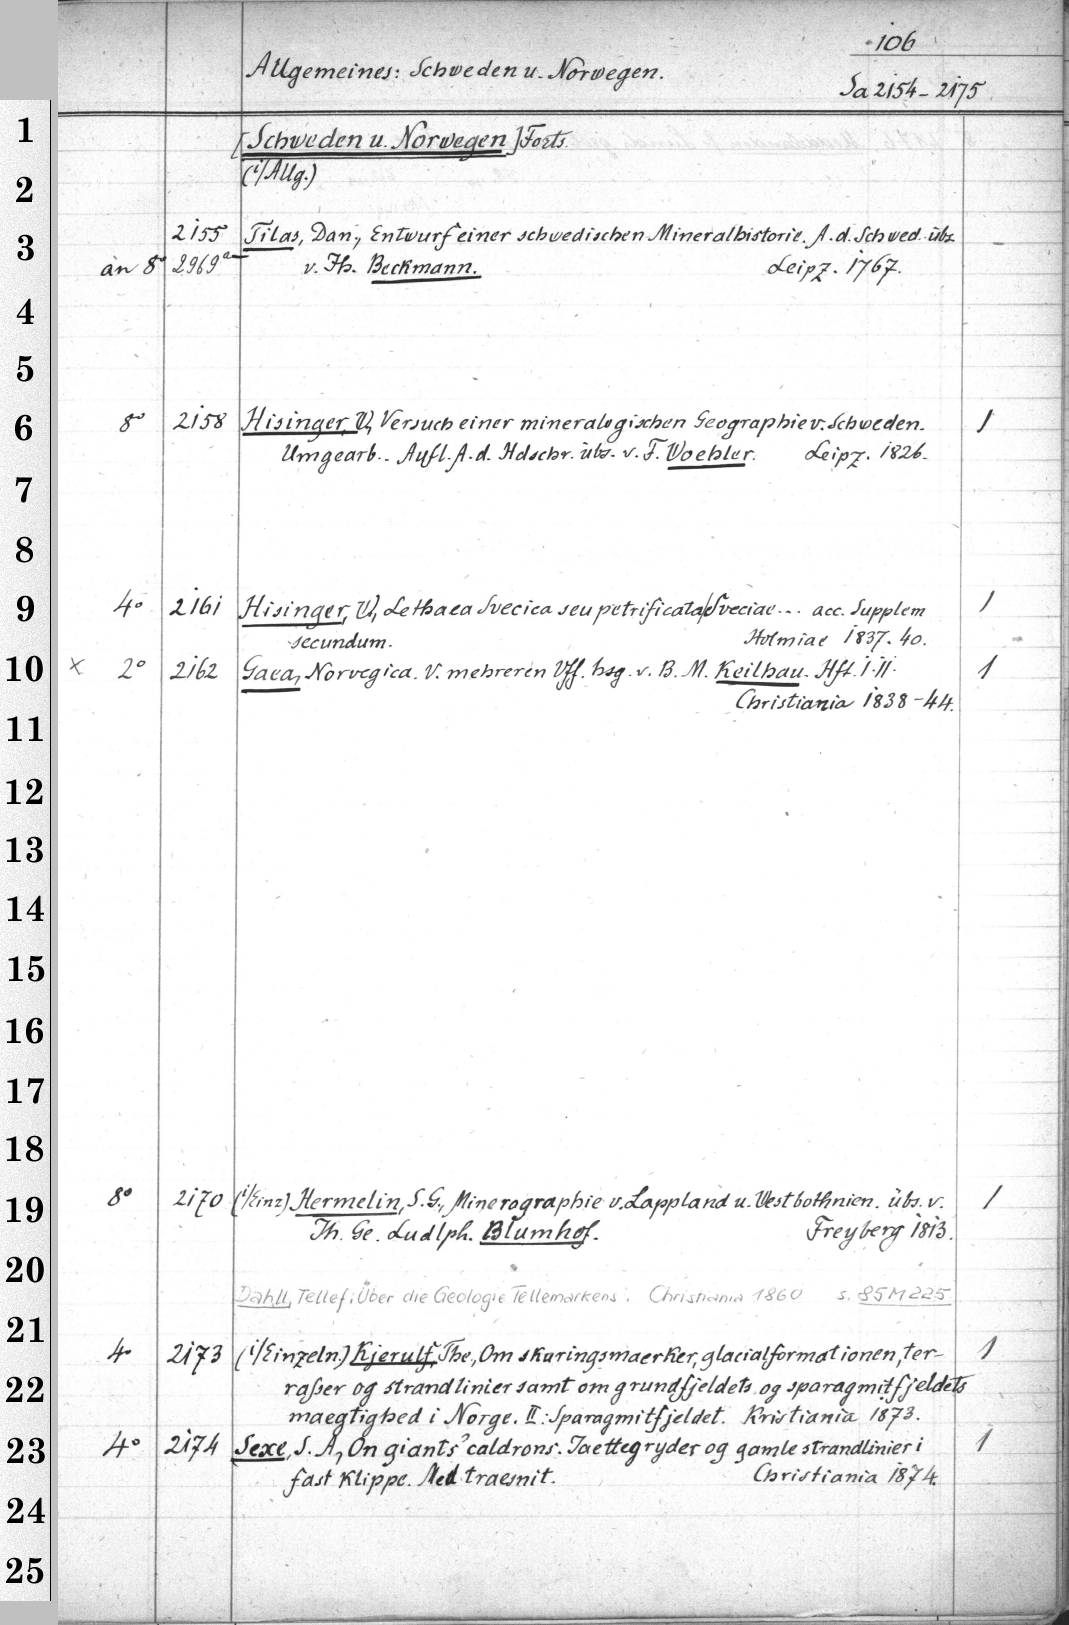 106
Allgemeines: Schweden u. Norwegen.
Sa 2154-2175
1 [Schweden u. Norwegen] Forts.
2 (i/Allg.)
3 2155 Tilas, Dan., Entwurf einer schwedischen Mineralhistorie. A. d. Schwed. übs. -
an 8° 2969a v. Th. Beckmann. Leipz. 1767.
4
5
6 8° 2158 Hisinger, W., Versuch einer mineralogischen Geographie v. Schweden. 1
Umgearb. Aufl. A. d. Hdschr. übs. v. F. Woehler. Leipz. 1826.
7
8
9 4° 2161 Hisinger, W., Lethaea Svecica seu petrificata Sveciae... acc. Supplem 1
secundum. Holmiae 1837-40.
10 x 2° 2162 Gaea, Norvegica. V. mehreren Vff. hsg. v. B. M. Keilhau. Hft. I. II. 1
Christiania 1838-44.
11
12
13
14
15
16
17
18
19 8° 2170 (i/Einz) Hermelin, S. G., Minerographie v. Lappland u. Westbothnien. übs. v. 1
Th. Ge. Ludlph. Blumhof. Freyberg 1813.
20
Dahll, Tellef: Über die Geologie Tellemarkens. Christiania 1860 s. 85 M 225
21
4° 2173 (i/Einzeln.) Kjerulf, The., Om skuringsmaerker, glacialformationen, ter- 1
22 rasser og strandlinier samt om grundfjeldets og sparagmitfjeldets
maegtighed i Norge. II: Sparagmitfjeldet. Kristiania 1873.
23 4° 2174 Sexe, S. A., On giants' caldrons. Jaettegryder og gamle strandlinier i 1
fast Klippe. Med traesnit. Christiania 1874.
24
25